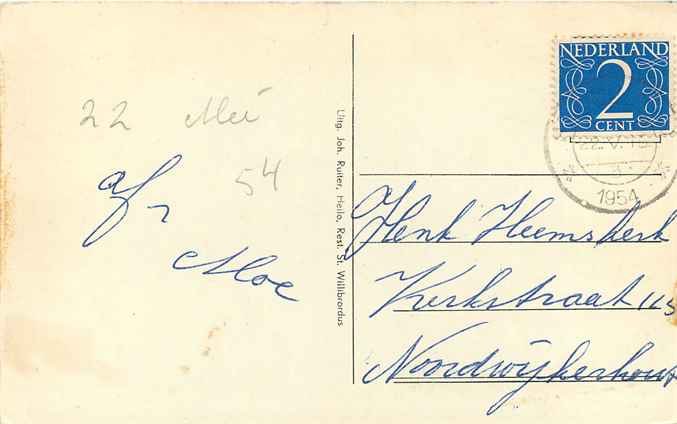 22 Mei
54
af.
Moe
Uitg. Joh. Ruiter, Heilo, Rest. St. Willibrordus
NEDERLAND
2
CENT
22.V.15
1954
Henk Heemskerk
Kerkstraat 115
Noordwijkerhout